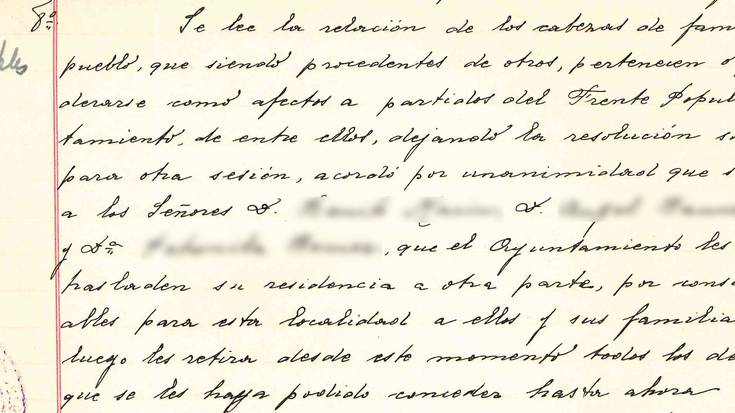 8º Se lee la relación de los cabezas de fam
pueblo, que siendo procedentes de otros, pertenecen o
derarse como afectos a partidos del Frente Popul
tamiento, de entre ellos, dejando la resolución
para otra sesión, acordó por unanimidad que s
a los Señores D. D.
y Dª , que el Ayuntamiento les
trasladen su residencia a otra parte, por cons
ables para esta localidad a ellos y sus familia
luego les retira desde este momento todos los de
que se les haya podido conceder hasta ahora